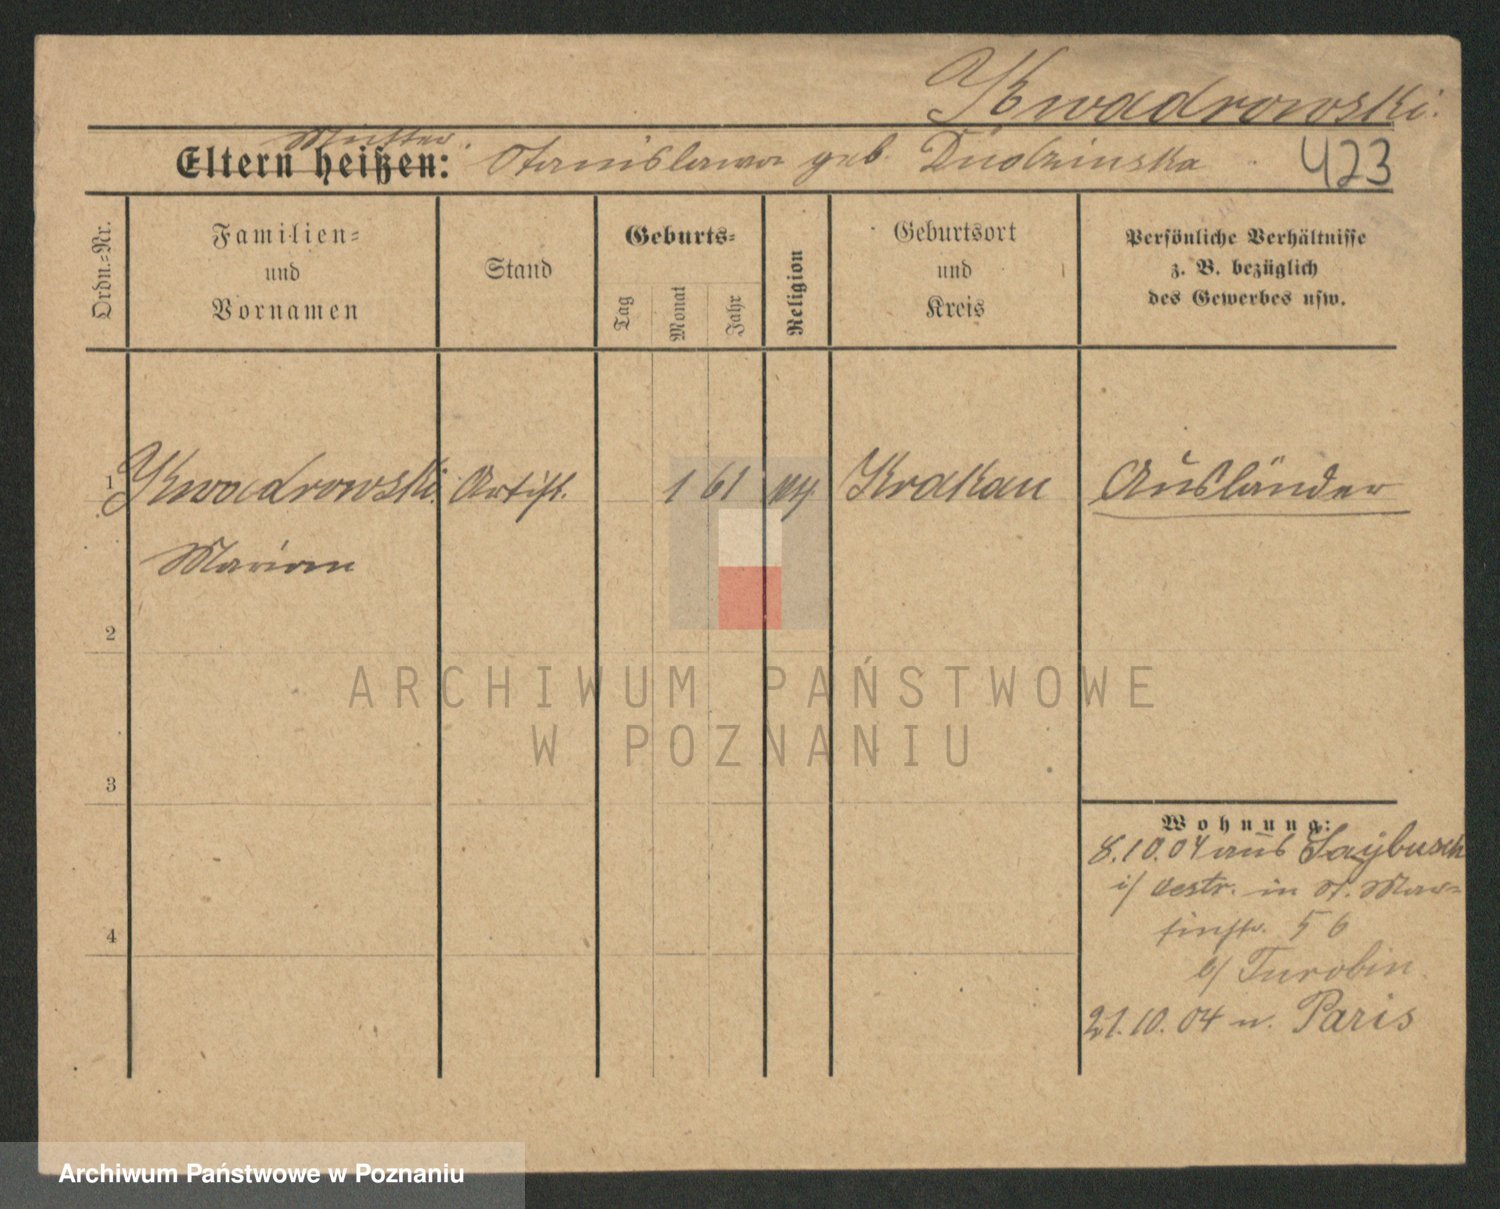 Kwadrowski.
Mutter.
Eltern heißen: Stanislawa geb. Dudzinska 423
Ordn.-Nr.
Familien-
und
Vornamen
Stand
Geburts-
Tag
Monat
Jahr
Religion
Geburtsort
und
Kreis
Persönliche Verhältnisse
z. B. bezüglich
des Gewerbes usw.
1 Kwadrowski Artist. 1 61 Krakau Ausländer
Marian
2
3
4
Wohnung:
8.10.04 aus Saybusch
i/ Oestr. in St. Mar=
tinstr. 56
b/ Turobin.
21.10.04 n. Paris
ARCHIWUM PAŃSTWOWE
W POZNANIU
Archiwum Państwowe w Poznaniu